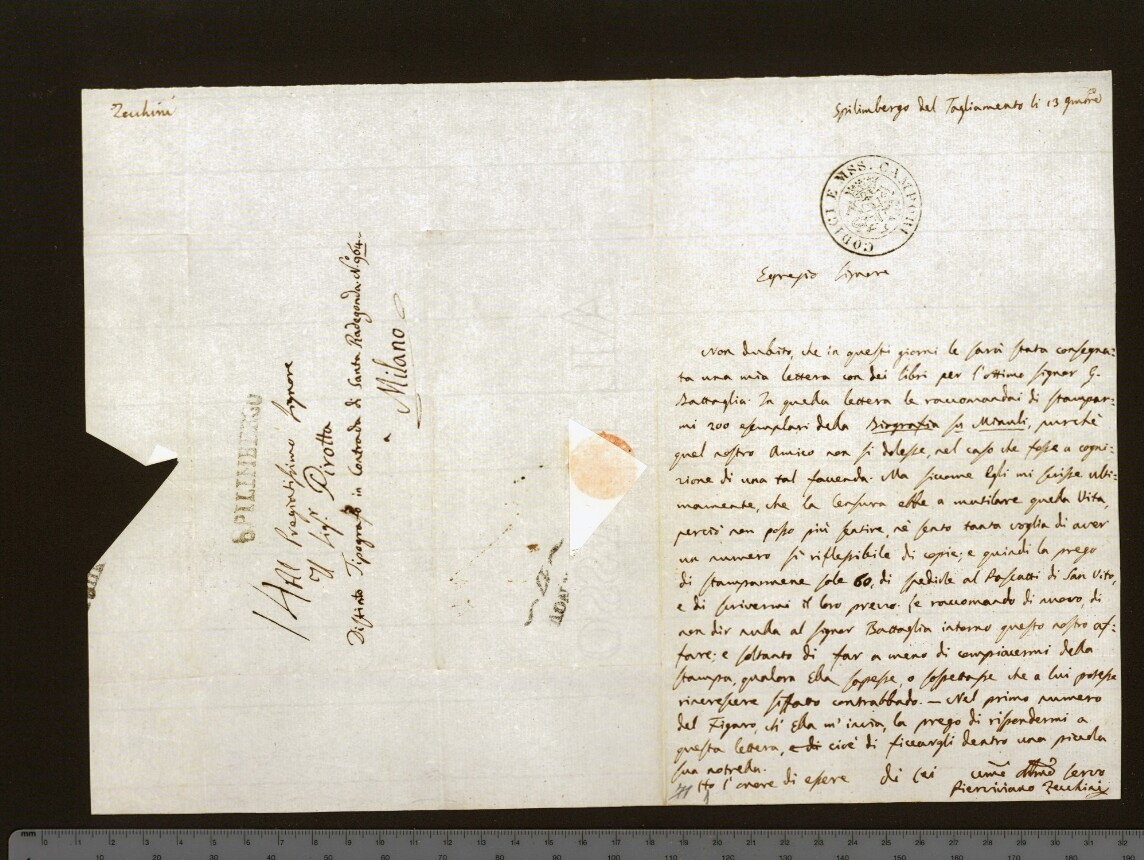 Zecchini
SPILIMBERGO
All Pregiatissimo Signore
Il Sigr. Pirotta
Distinto Tipografo in Contrada di Santa Radegonda N.º 964.
a
Milano
Spilimbergo del Tagliamento li 13 9mbre
CODICI E MSS. CAMPORI
Egregio Signore
Non dubito, che in questi giorni le sarà stata consegna:
ta una mia lettera con dei libri per l'ottimo Signor G.
Battaglia. In quella lettera le raccomandai di stampar:
mi 200 esemplari della Biografia su Minuli, purchè
quel nostro Amico non si dolesse, nel caso che fosse a cogni:
zione di una tal faccenda. Ma siccome Egli mi scrisse ulti:
mamente, che la Censura ebbe a mutilare quella Vita,
perciò non posso più sentire, nè sento tanta voglia di aver
un numero sì riflessibile di copie; e quindi la prego
di stamparmene sole 60, di spedirle al Pascatti di San Vito,
e di scrivermi il loro prezzo. Le raccomando di nuovo, di
non dir nulla al Signor Battaglia intorno questo nostro af:
fare; e soltanto di far a meno di compiacermi della
stampa, qualora Ella sapesse, o sospettasse che a lui potesse
rincrescere siffatto contrabbado. — Nel primo numero
del Figaro, ch' Ella m' invia, la prego di rispondermi a
questa lettera, e di cioè di ficcargli dentro una piccola
sua notrella.
Ho l'onore di essere di Lei umo servo
Pierviviano Zecchini